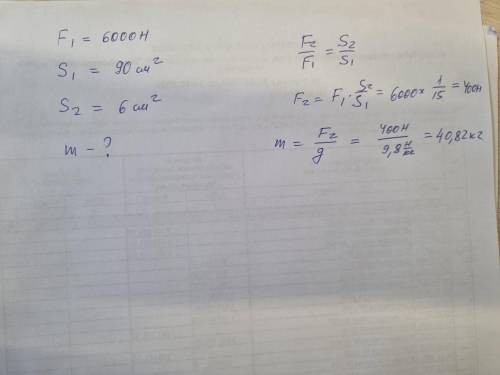 F₁ = 6000Н
S₁ = 90 см²
S₂ = 6 см²
m - ?
F₂/F₁ = S₂/S₁
F₂ = F₁ · S₂/S₁ = 6000 × 1/15 = 400Н
m = F₂/g = 400Н / 9,8 Н/кг = 40,82 кг